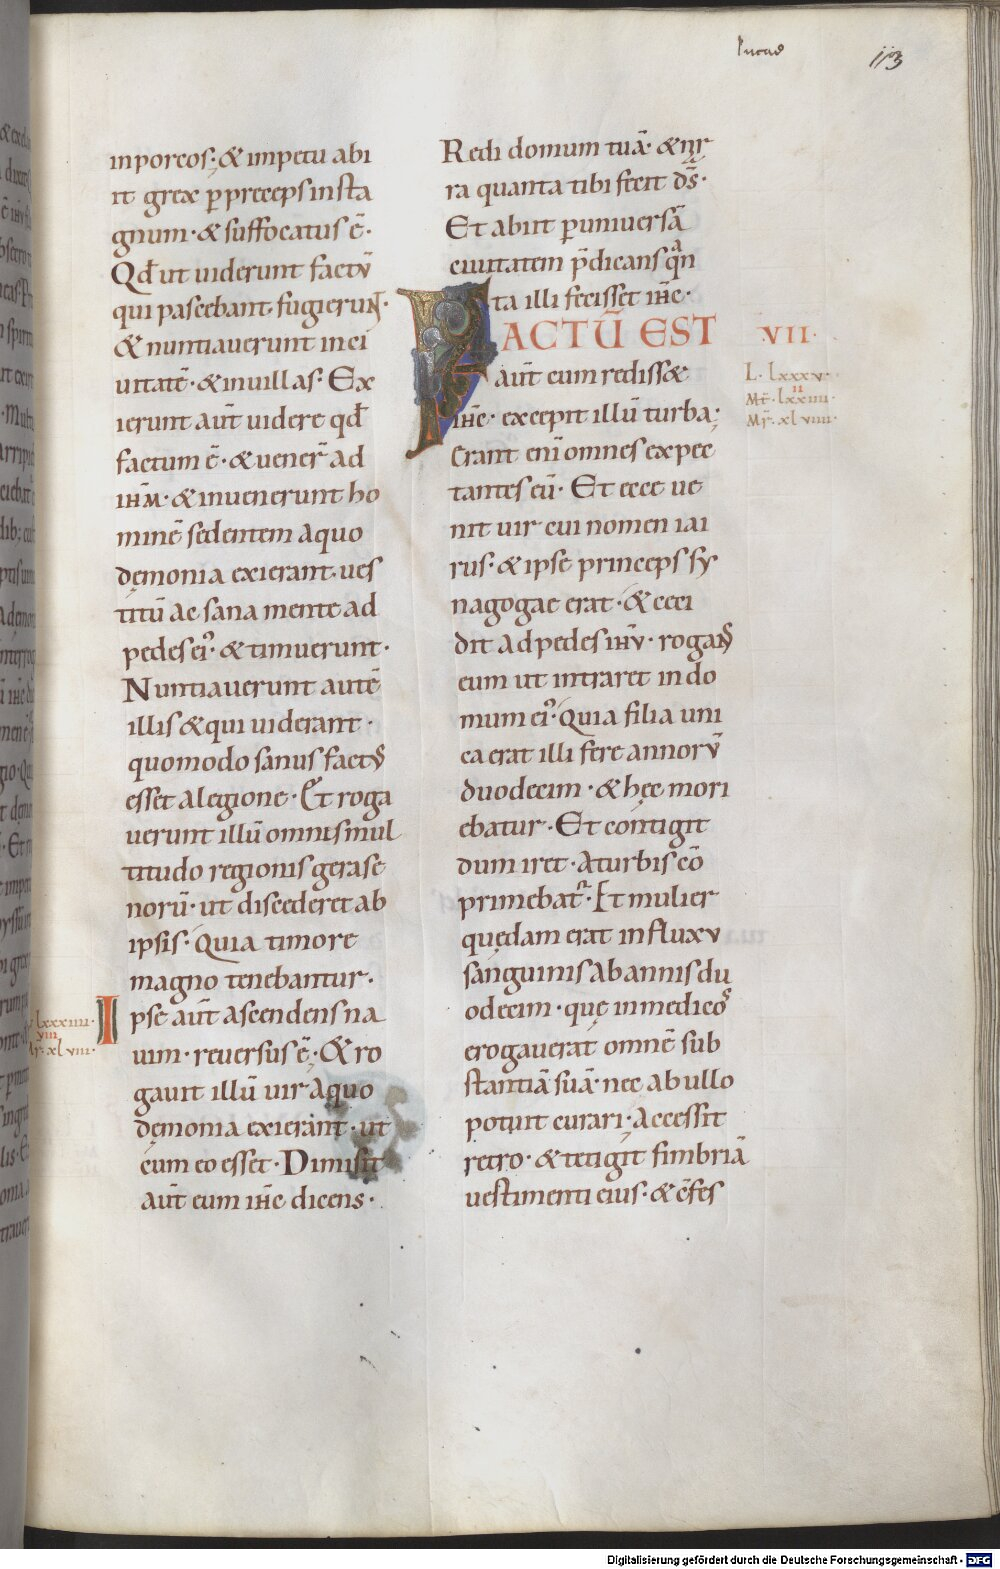 lucas
113
inporcos; & impetu abi
it grex p̱ preceps insta
gnum · & suffocatus ē ·
Qđ ut uiderunt factū
qui pascebant · fugieruꝴ ·
& nuntiauerunt in ci
uitatē · & in uillas · Ex
ierunt aūt uidere qđ
factum ē · & uener̄ ad
ihm̄ · & inuenerunt ho
minē sedentem a quo
dęmonia exierant · ues
titū ac sana mente ad
pedes ei᾽ · & timuerunt ·
Nuntiauerunt autē
illis & qui uiderant ·
quomodo sanus factꝰ
esset a legione · Et roga
uerunt illū omnis mul
titudo regionis gerase
norū · ut discederet ab
ipsis · Quia timore
magno tenebantur ·
Ipse aūt ascendens na
uim · reuersus ē; & ro
gauit illū uir a quo
dęmonia exierant · ut
cum eo esset · Dimisit
aūt eum ih̄c dicens ·
lxxxiiii ·
viii
Mr̄ · xlviii ·
Redi domum tuā · & nar
ra quanta tibi fecit d̄s ·
Et abiit p̱ uniuersā
ciuitatem p̄dicans qͣn
ta illi fecisset ih̄c ·
FACTŪ EST
aūt cum rediss&
ih̄c · excepit illū turba;
Erant eni omnes expec
tantes eū · Et ecce ue
nit uir cui nomen iai
rus · & ipse princeps sy
nagogae erat · & ceci
dit ad pedes ih̄v · rogans
eum ut intraret in do
mum ei᾽ · Quia filia uni
ca erat illi fere annorū
duodecim · & hęc mori
ebatur · Et contigit
dum iret · a turbis cō
primebat᷑ · Et mulier
quędam erat in fluxv
sanguinis ab annis du
odecim · quę in medicoꝰ
erogauerat omnē sub
stantiā suā · nec ab ullo
potuit curari · Accessit
retro · & tetigit fimbriā
uestimenti eius · & cf̄es
VII ·
L · lxxxv ·
ii
Mt̄ · lxxiiii ·
Mr̄ · xlviiii ·
Digitalisierung gefördert durch die Deutsche Forschungsgemeinschaft - DFG